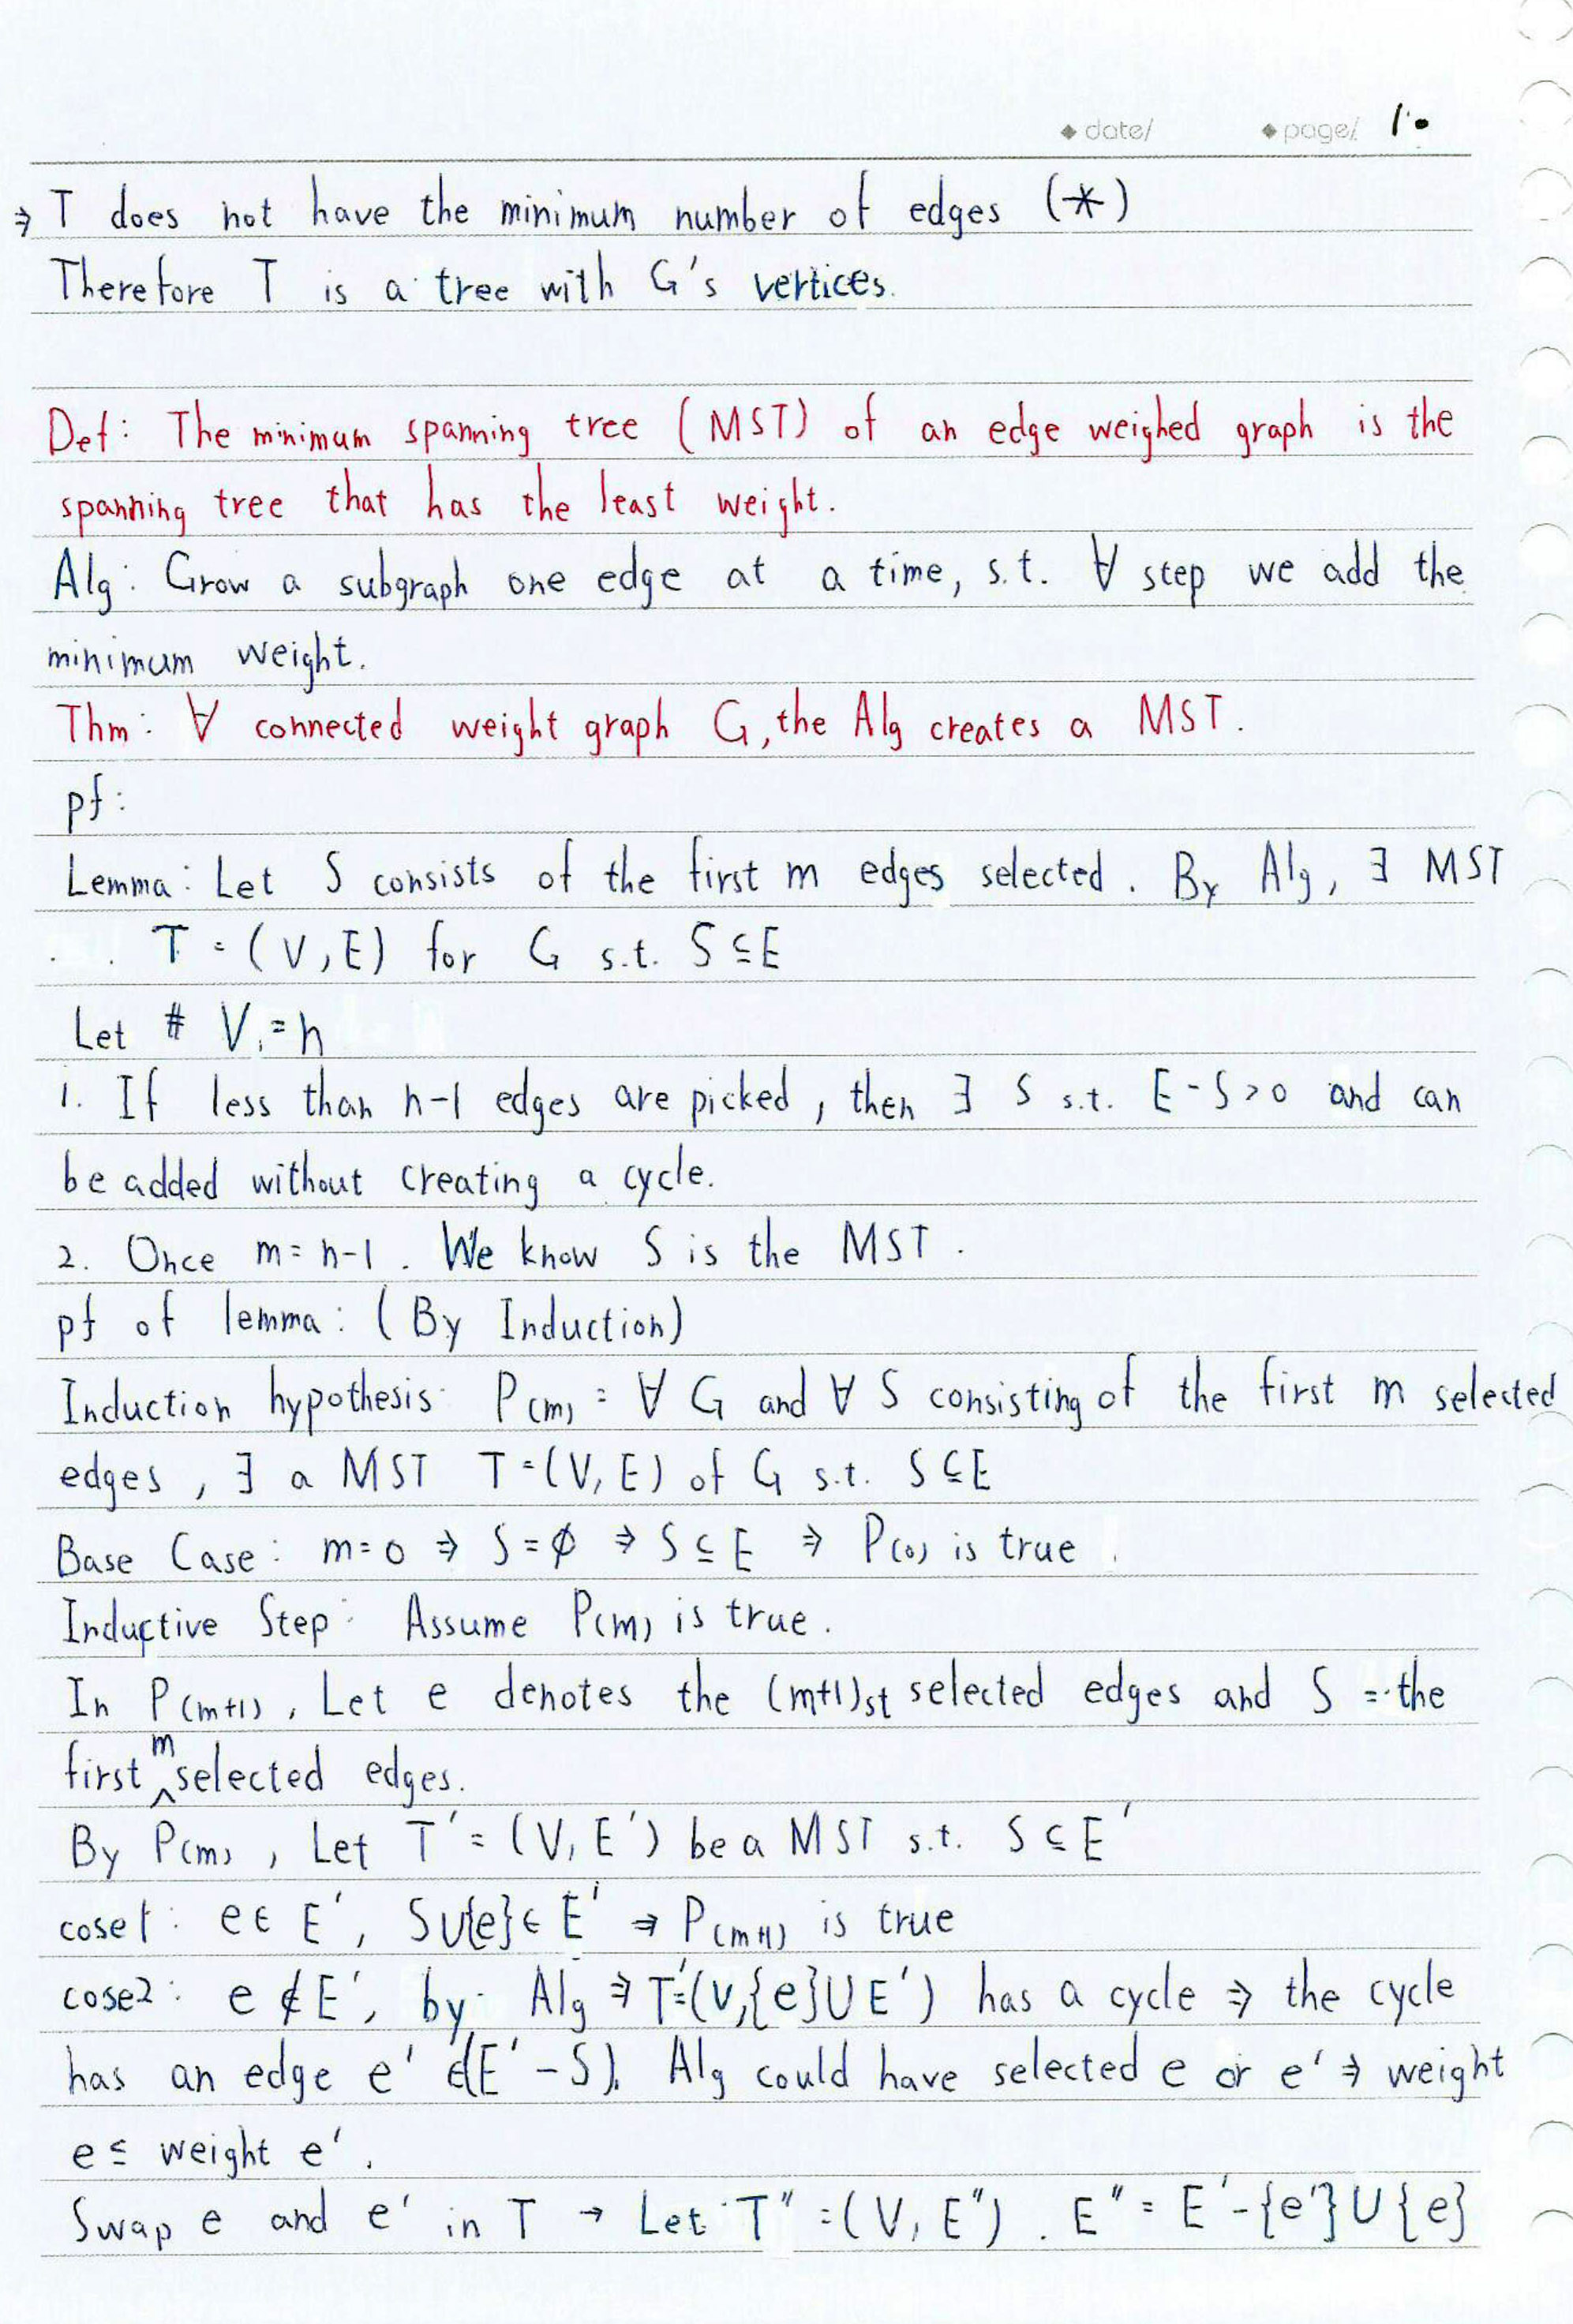 ◆ date/ ◆ page/ 10
⇒ T does not have the minimum number of edges (*)
Therefore T is a tree with G's vertices.
Def: The minimum spanning tree (MST) of an edge weighed graph is the
spanning tree that has the least weight.
Alg: Grow a subgraph one edge at a time, s.t. ∀ step we add the
minimum weight.
Thm: ∀ connected weight graph G, the Alg creates a MST.
pf:
Lemma: Let S consists of the first m edges selected. By Alg, ∃ MST
T = (V, E) for G s.t. S ⊆ E
Let # V = n
1. If less than n-1 edges are picked, then ∃ S s.t. E - S > 0 and can
be added without creating a cycle.
2. Once m = n-1. We know S is the MST.
pf of lemma: (By Induction)
Induction hypothesis: P(m) = ∀ G and ∀ S consisting of the first m selected
edges, ∃ a MST T = (V, E) of G s.t. S ⊆ E
Base Case: m = 0 ⇒ S = ∅ ⇒ S ⊆ E ⇒ P(0) is true.
Inductive Step: Assume P(m) is true.
In P(m+1), Let e denotes the (m+1)st selected edges and S = the
first m selected edges.
By P(m), Let T' = (V, E') be a MST s.t. S ⊆ E'
case1: e ∈ E', S∪{e} ∈ E' ⇒ P(m+1) is true
case2: e ∉ E', by Alg ⇒ T'=(V,{e}∪E') has a cycle ⇒ the cycle
has an edge e' ∈(E' - S). Alg could have selected e or e' ⇒ weight
e ≤ weight e'.
Swap e and e' in T → Let T" = (V, E"). E" = E' - {e'} ∪ {e}